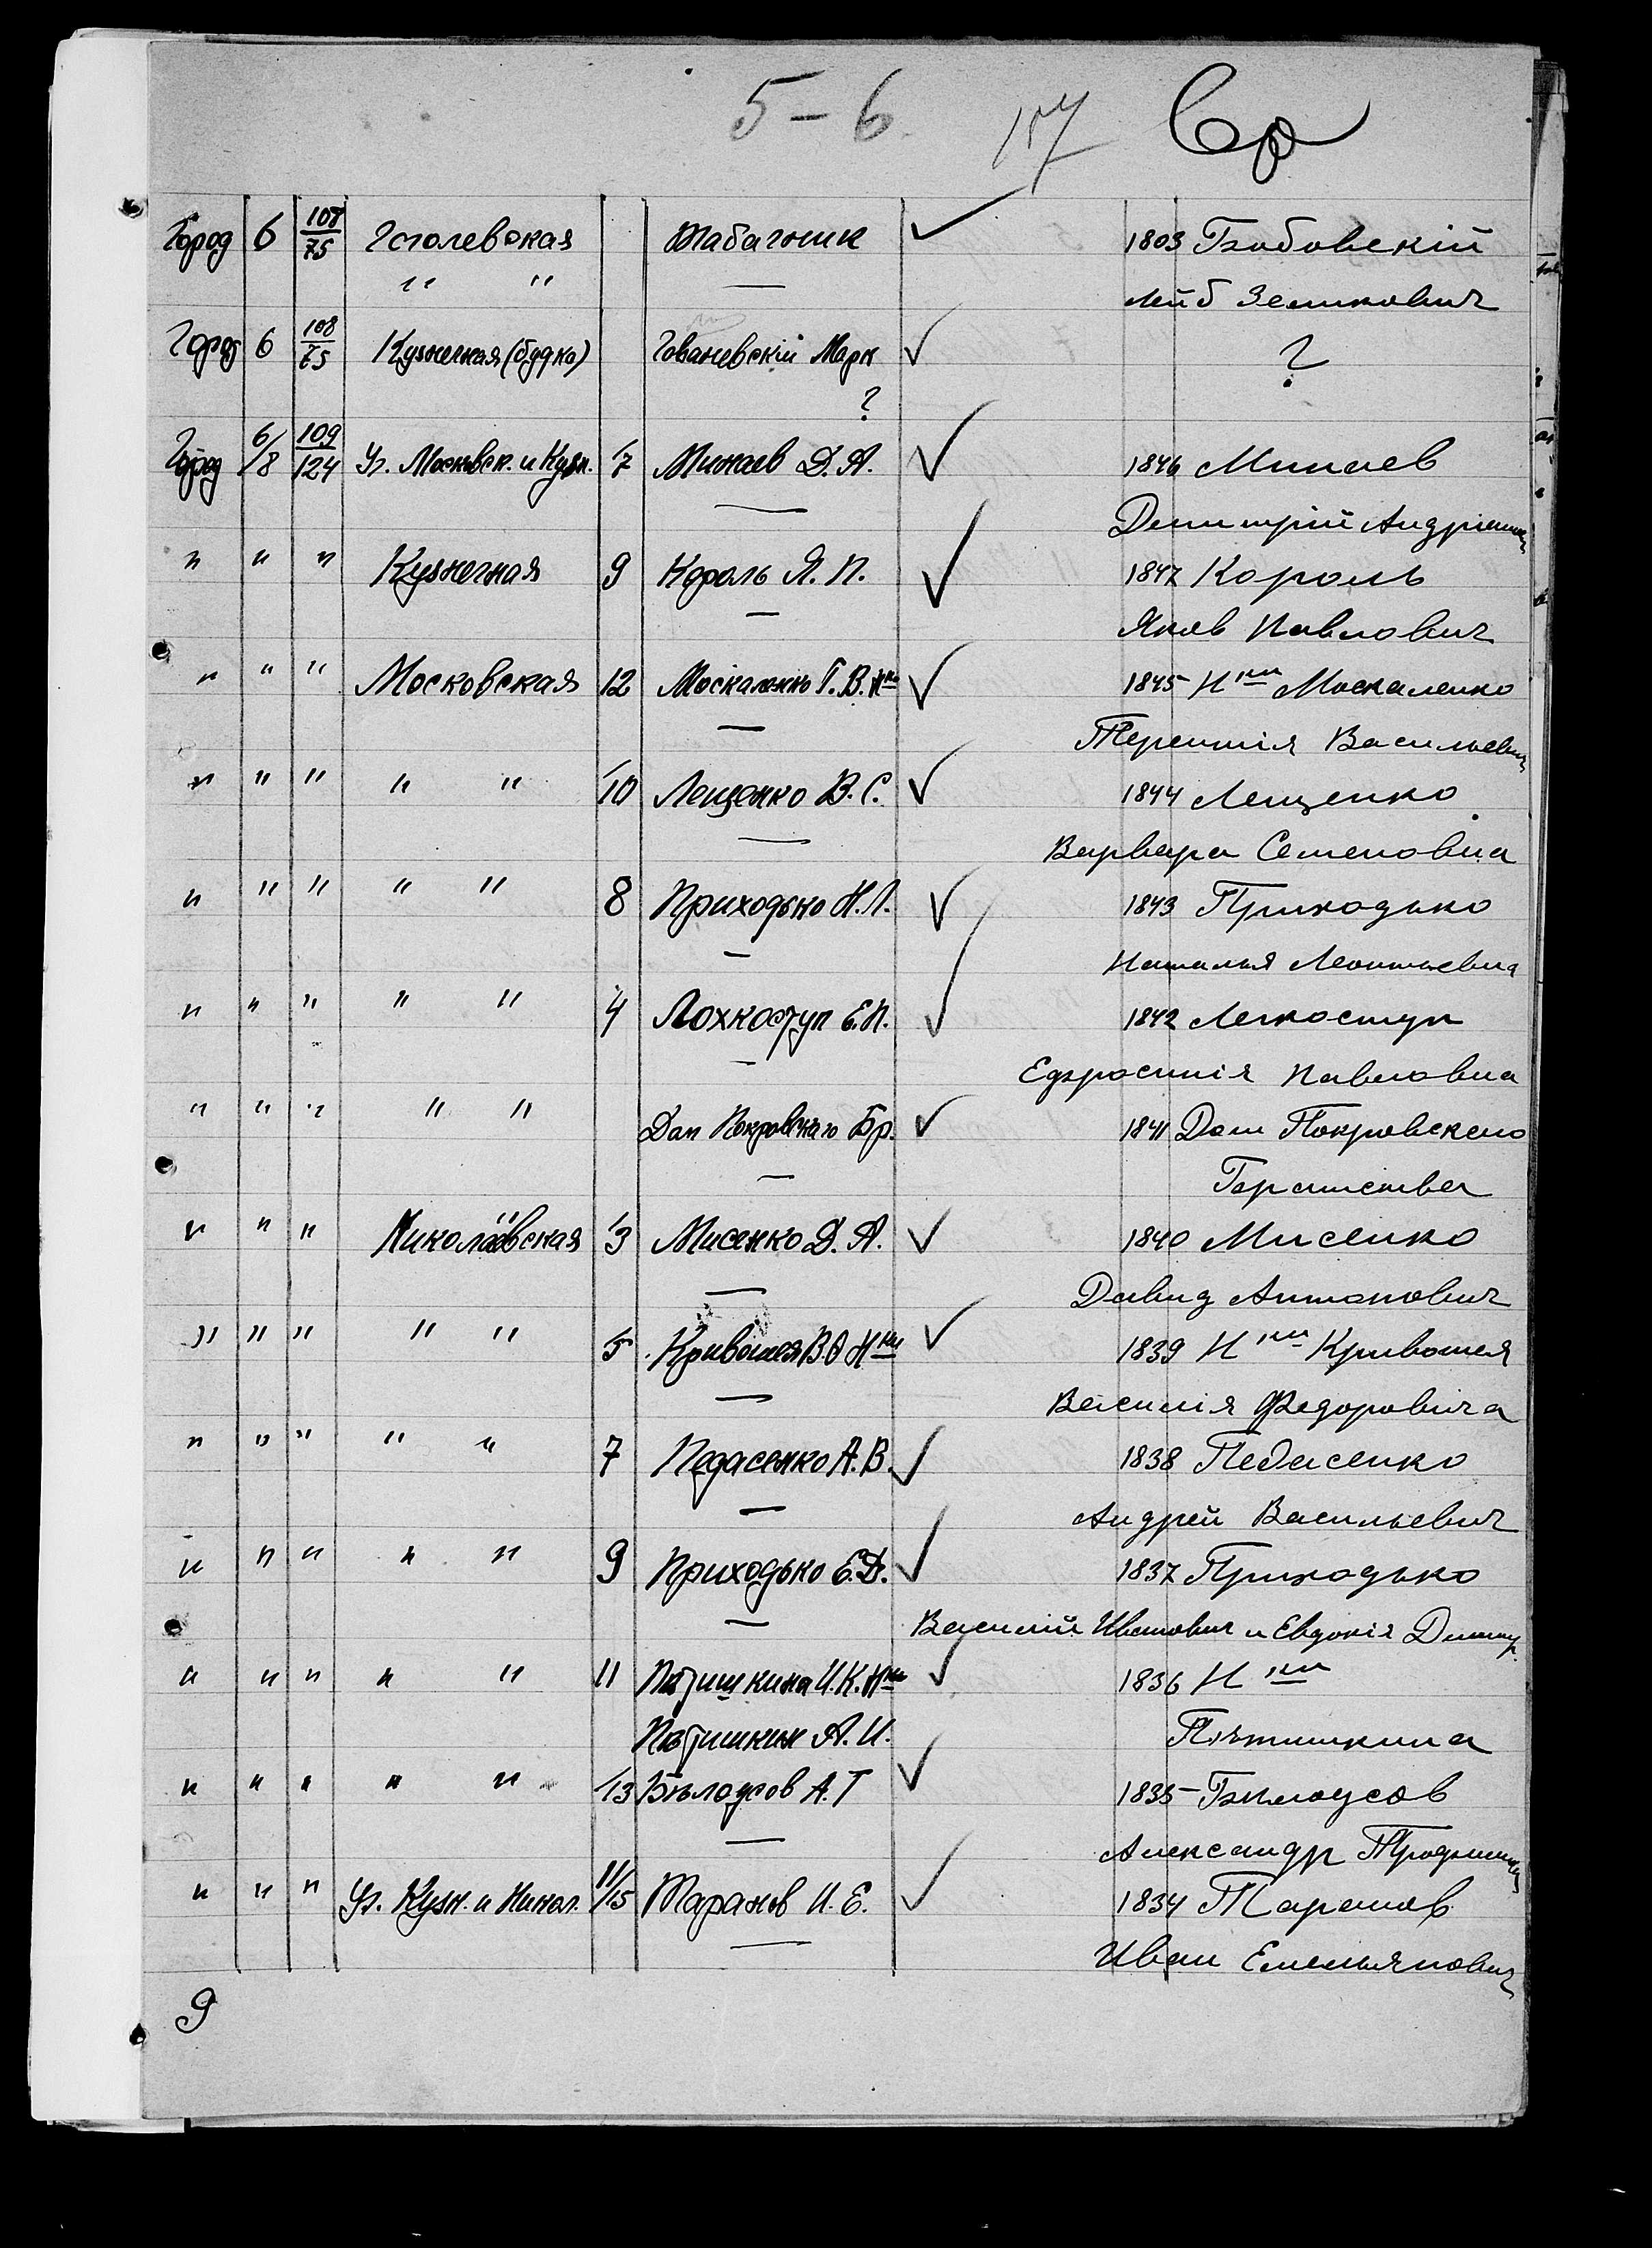 5-6 157
Город 6 107/75 Гоголевская Табачник 1803 Бобовскій
" " — Лейб Зеликович
Город 6 108/75 Кузнечная (будка) Гованевскій Марк ?
?
Город 6/8 109/124 Уг. Московск. и Кузн. 7 Минаев Д. А. 1846 Минаев
— Дмитрій Андріанович
" " " Кузнечная 9 Король Я. П. 1847 Король
— Яков Павлович
" " " Московская 12 Москаленко Т. В. Нки 1845 Нки Москаленко
— Терентія Васильевич
" " " " " 10 Лещенко В. С. 1844 Лещенко
— Варвара Семеновна
" " " " " 8 Приходько Н. Л. 1843 Приходько
— Наталья Леонтьевна
" " " " " 4 Лохкоступ Е. П. 1842 Легкоступ
— Ефросинія Павловна
" " " " " Дом Покровскаго Бр. 1841 Дом Покровскаго
— Братства
" " " Николаевская 3 Мисенко Д. А. 1840 Мисенко
— Давид Антонович
" " " " " 5 Кривошея В. Ѳ Нки 1839 Нки Кривошея
— Василія Федоровича
" " " " " 7 Педасенко А. В. 1838 Педасенко
— Андрей Васильевич
" " " " " 9 Приходько Е. Д. 1837 Приходько
— Василій Иванович и Евдокія Димитр.
" " " " " 11 Пѣтишкина И. К. Нки 1836 Нки
Пѣтишкин А. И. Пѣтишкина
" " " " " 13 Бѣлоусов А. Т 1835 Бѣлоусов
— Александр Трофимович
" " " Уг. Кузн. и Никол. 11/15 Таранов И. Е. 1834 Таранов
— Иван Емельянович
9